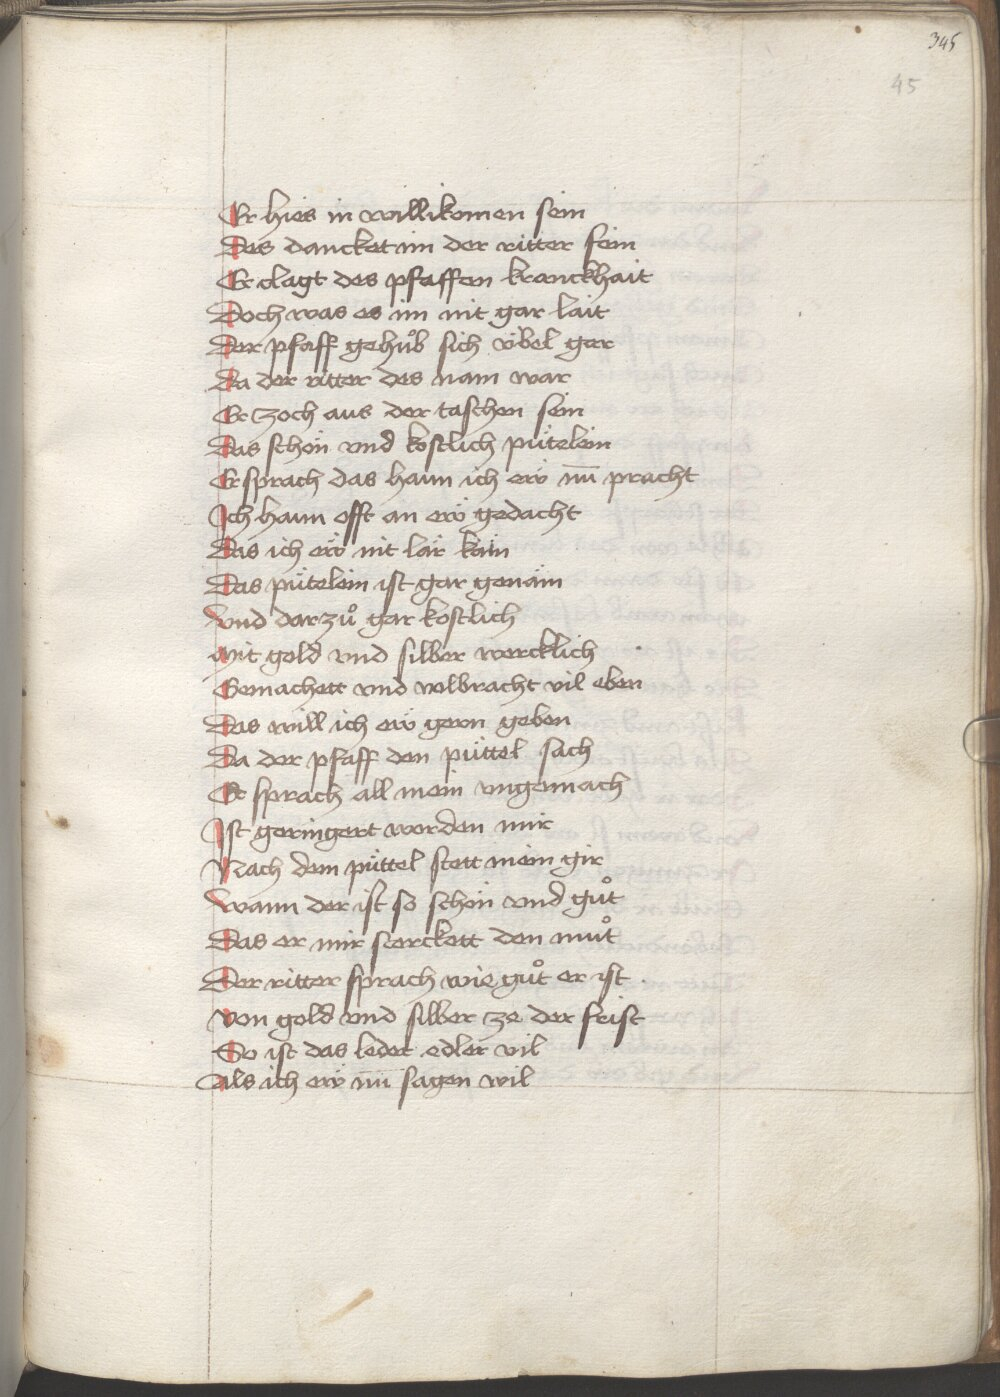 345
45
Er hies in willikomen sein
Des dancket im der ritter fein
Er clagt des pfaffen kranckhait
Doch was es im nit gar lait
Der pfaff gehůb sich übel gar
Da der ritter des nam war
Er zoch aus der taschen sein
Das schön vnd kostlich pütelein
Er sprach das hann ich eẅ nū pracht
Ich hann offt an eẅ gedacht
Das ich eẅ nit lär käm
Das pütelein ist gar genäm
Vnd darzů gar kostlich
Mit gold vnd silber wercklich
Gemachett vnd volbracht vil eben
Das will ich eẅ gern geben
Da der pfaff den püttel sach
Er sprach all mein vngemach
Ist geringert worden mir
Nach dem püttel stett mein gir
Wann der ist so schön vnd gůt
Das er mir sterckett den můt
Der ritter sprach wie gůt er ist
Von gold vnd silber ze der frist
So ist das leder edler vil
Als ich eẅ nū sagen wil